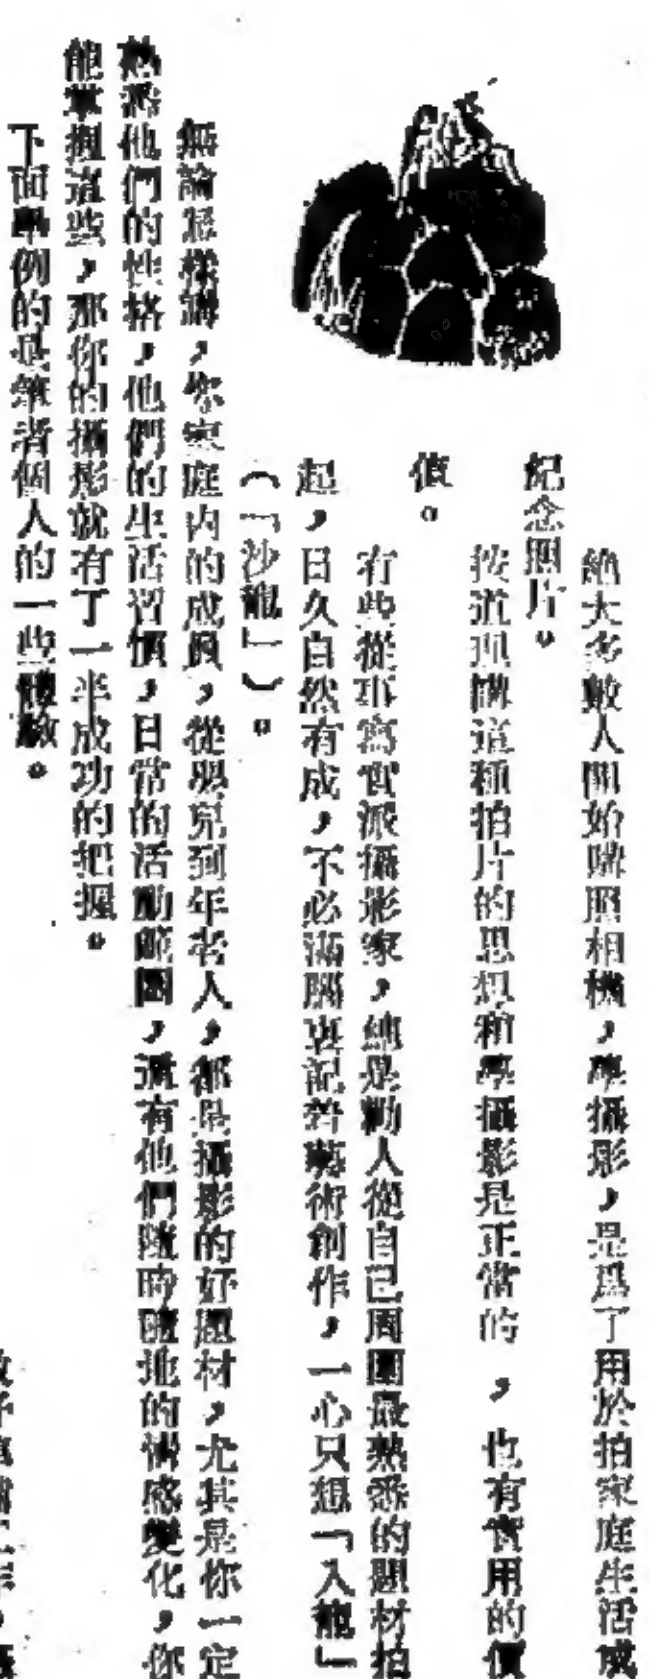 絕大多數人開始購照相機，學攝影，是爲了用於拍家庭生活或
紀念照片。
按道理講這種拍片的思想和學攝影是正常的，也有實用的價
值。
有些從事寫實派攝影家，總是勸人從自己周圍最熟悉的題材拍
起，日久自然有成，不必滿腦裏記着藝術創作，一心只想「入龍」
（「沙龍」）。
無論怎樣講，您家庭内的成員，從嬰兒到年老人，都是攝影的好題材，尤其是你一定
熟悉他們的性格，他們的生活習慣，日常的活動範圍，還有他們隨時隨地的情感變化，你
能掌握這些，那你的攝影就有了一半成功的把握。
下面舉例的是筆者個人的一些體驗。